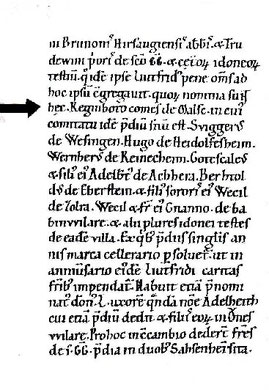 in Brunonis Hirsaugiensis abbis. & Tru
dewini pʼoris de sco GG. & ceteroꝝ idoneoꝝ
testiu. qʼ idem ipse Lutfridʼ pene oms ad
hoc ipsu cgregavit. quoꝝ nomina sut
hec. Reginboto comes de Malse. in cuiʼ
comitatu idē pʼdiu situ est. Swiggerʼ
de Wesingen. Hugo de Heidolfesheim.
Wernherʼ de Reinecheim. Gotescalcʼ
& filiʼ eiʼ Adelbʼtʼ de Achhera. Berhtol
dʼ de Eberstein. & filiʼ sororis eiʼ Wecil
de Zolra. Wecil & frʼ eiʼ Gnanno. de ba
binwilare. & alii plures idonei testes
de eadē villa. Ex qʼbʼ pʼdiis singulis an
nis marca cellerario psolveret. ut in
annivsario eiʼdē Lutfridi caritas
fribʼ impendatʼ. Habuit etiā pʼnomi
natʼ domʼ L. uxorē quandā noe Adelheith
cui etiā pʼdiu dedit & filiis eoꝝ in dnes
wilare. Pro hoc incambio dederʼ fres
de s. GG. pʼdia in duobʼ Sahsenheim sita.